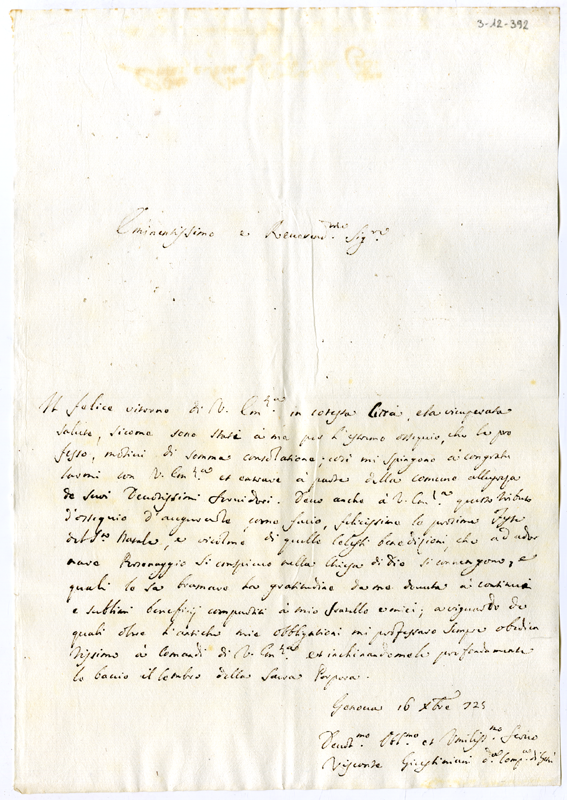 3-12-392
Eminentissimo e Reverend.mo Sig.re
Il felice ritorno di V. Em.za in cotessa Città, e la ricuperata
salute, sicome sono state à me per l'estremo ossequio, che le pro
fesso, motivi di somma consolatione, così mi spingono à congratu
larmi con V. Em.za et entrare à parte della comune allegrezza
de suoi Devotissimi Servidori. Devo anche à V. Em.za questo tributo
d'ossequio d'augurarle come facio, felicissime le prossime Feste
del S.mo Natale, e ricolme di quelle Celesti benedizioni, che ad ador
nare Personaggio sì conspicuo nella Chiesa di Dio si convengono, e
quali le sà bramare la gratitudine da me dovuta à continui
e sublimi beneficij compartiti à mio fratello e miei; a riguardo de
quali oltre l'antiche mie obbligationi mi professarò sempre obedien
tissimo à comandi di V. Em.za et inchinandomele profondamente
le baccio il lembo della Sacra Porpora.
Genova 16 Xbre 725
Devot.mo Obl.mo et Umiliss.mo Servo
Visconte Giustiniani d.a Comp.a di Giesù